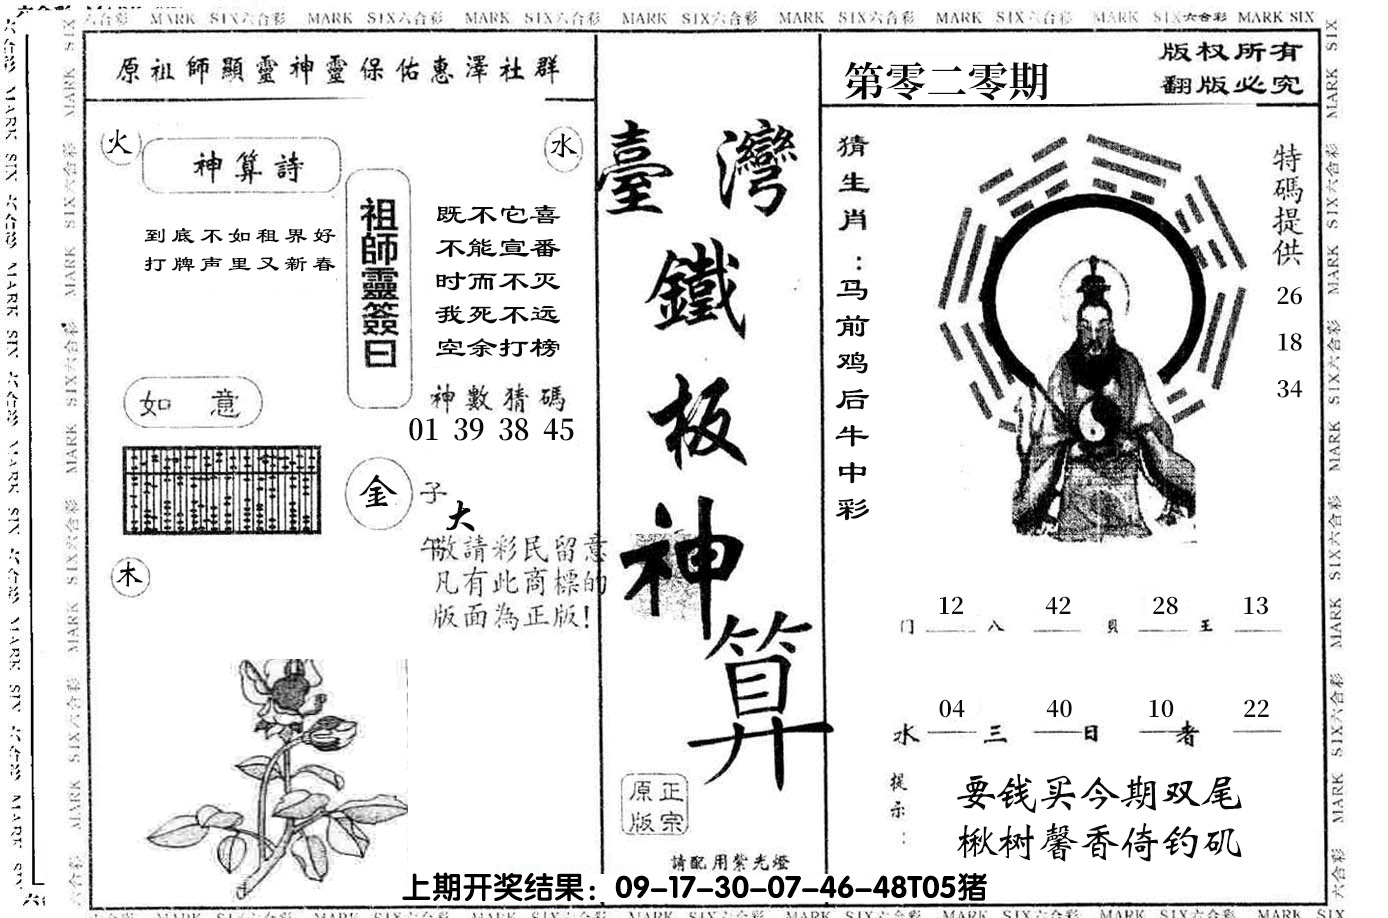 六合彩 MARK SIX六合彩 MARK SIX六合彩 MARK SIX六合彩 MARK SIX六合彩 MARK SIX六合彩 MARK SIX六合彩 MARK SIX六合彩 MARK SIX
原祖師顯靈神靈保佑惠澤社群
火
水
神算詩
到底不如租界好
打牌声里又新春
祖師靈簽曰
既不它喜
不能宣番
时而不灭
我死不远
空余打榜
神數猜碼
01 39 38 45
如 意
金
子
大
午
敬請彩民留意
凡有此商標的
版面為正版!
木
臺灣
鐵
板
神
算
正宗
原版
請配用紫光燈
第零二零期
版权所有
翻版必究
猜生肖:马前鸡后牛中彩
特碼提供
26
18
34
门 12 八 42 貝 28 王 13
水 04 三 40 日 10 者 22
提示:
要钱买今期双尾
楸树馨香倚钓矶
上期开奖结果：09-17-30-07-46-48T05猪